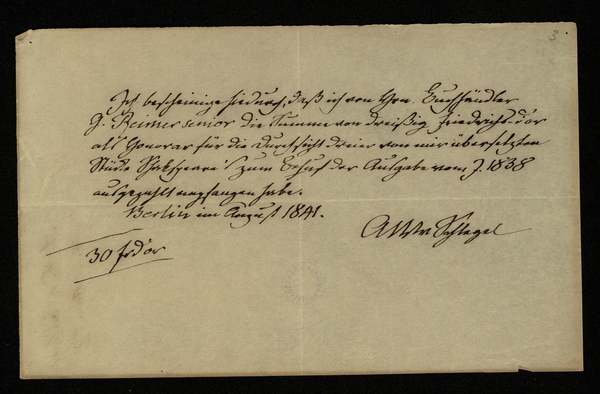 3.
Ich bescheinige hiedurch, daß ich von Hrn. Buchhändler
G. Reimer senior die Summe von dreißig Friedrichsd'or
als Honorar für die Durchsicht dreier von mir übersetzten
Stücke Shakspeare's zum Behuf der Ausgabe vom J. 1838
ausgezahlt empfangen habe.
Berlin im August 1841.
AWv Schlegel
30 Frd'or